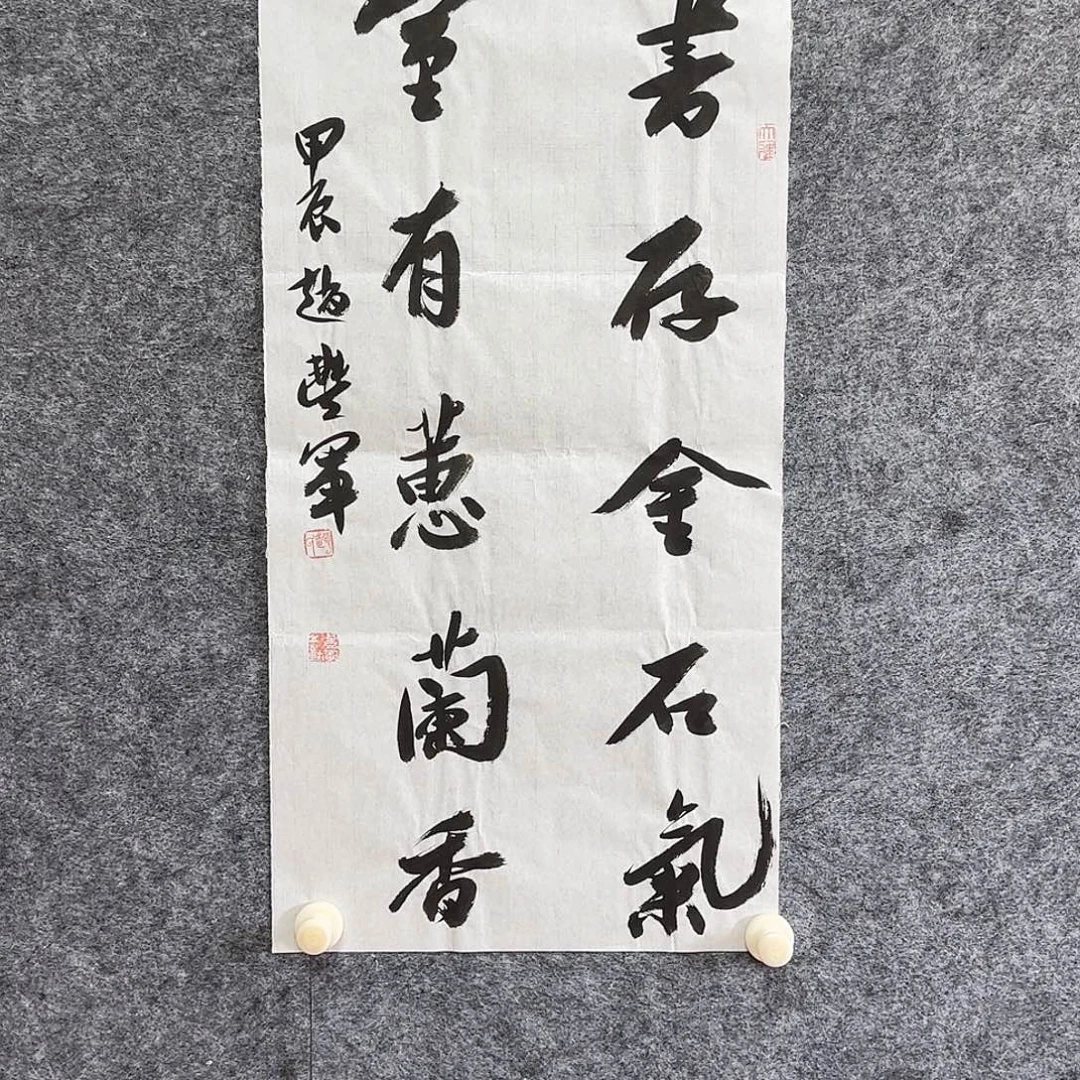 書存金石氣
室有蕙蘭香
甲辰趙豐軍